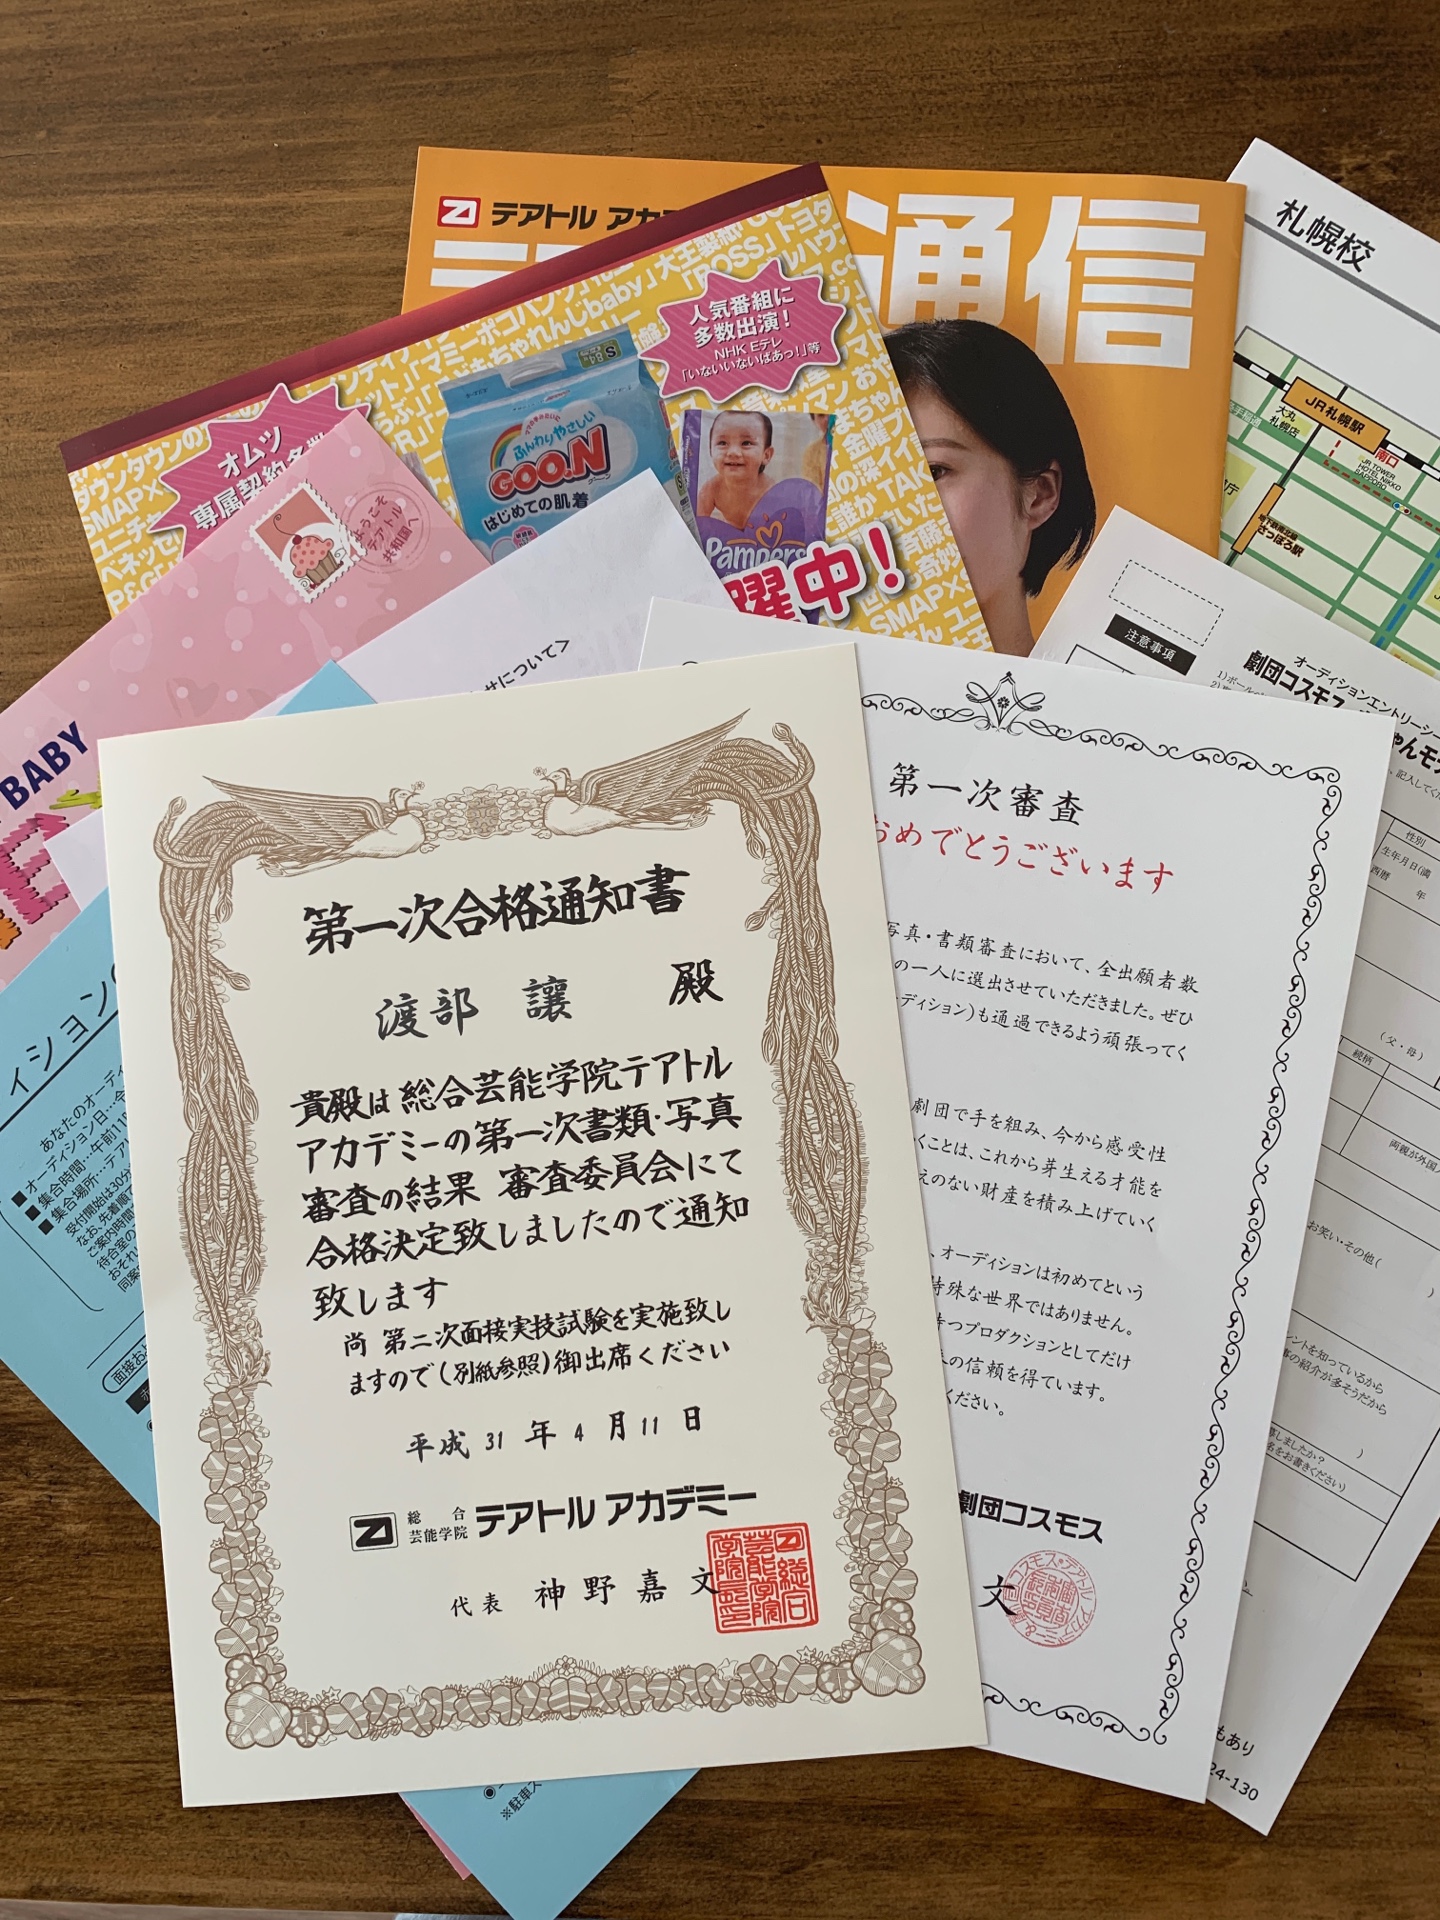 テアトル アカ
通信
札幌校
JR札幌駅
大丸
札幌店
南口
JR TOWER
HOTEL NIKKO
SAPPORO
さっぽろ駅
人気番組に
多数出演！
NHK Eテレ
「いないいないばあっ！」等
オムツ
専属契約多数
ふんわりやさしい
GOO.N
はじめての肌着
Pampers
躍中！
ようこそ
テアトル
共和国へ
BABY
せについて＞
注意事項
オーディションエントリーシー
劇団コスモス
ゃんモデ
性別
生年月日(満
西暦 年
(父・母)
続柄
両親が外国人
お笑い・その他(
)
レントを知っているから
事の紹介が多そうだから
募しましたか？
名をお書きください)
もあり
24-130
第一次審査
おめでとうございます
写真・書類審査において、全出願者数
の一人に選出させていただきました。ぜひ
ーディション)も通過できるよう頑張ってく
劇団で手を組み、今から感受性
くことは、これから芽生える才能を
えのない財産を積み上げていく
、オーディションは初めてという
特殊な世界ではありません。
持つプロダクションとしてだけ
への信頼を得ています。
ください。
劇団コスモス
文
第一次合格通知書
渡部 讓 殿
貴殿は総合芸能学院テアトル
アカデミーの第一次書類・写真
審査の結果 審査委員会にて
合格決定致しましたので通知
致します
尚 第二次面接実技試験を実施致し
ますので(別紙参照)御出席ください
平成 31 年 4 月 11 日
総合
芸能学院 テアトル アカデミー
代表 神野嘉文
ィション
あなたのオーディ
■オーディション日…令
■集合時間…午前11時
■集合場所…テア
受付開始は30分
なお、先着順
ご案内時間
待合室の
おそれ
同案
面接お
※駐車ス